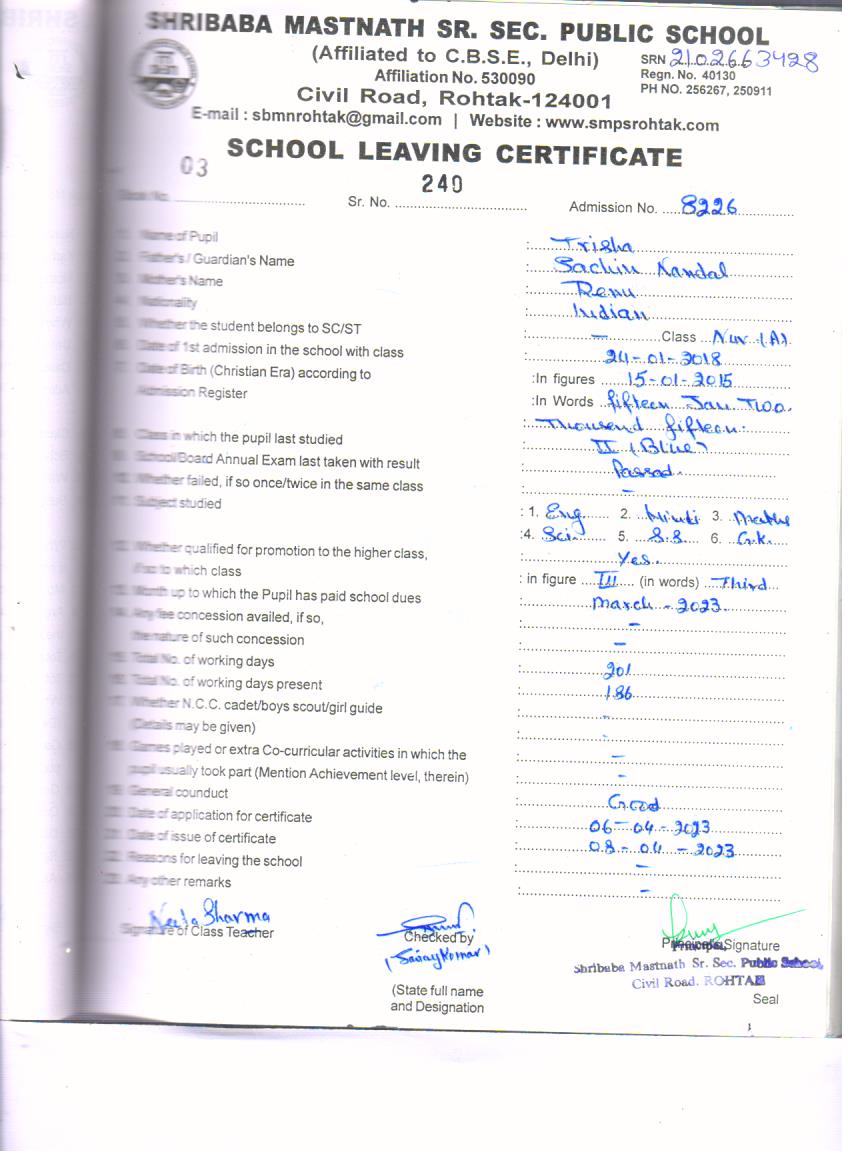 SHRIBABA MASTNATH SR. SEC. PUBLIC SCHOOL
(Affiliated to C.B.S.E., Delhi)
SRN 2102663428
Affiliation No. 530090
Regn. No. 40130
Civil Road, Rohtak-124001
PH NO. 256267, 250911
E-mail : sbmnrohtak@gmail.com | Website : www.smpsrohtak.com
SCHOOL LEAVING CERTIFICATE
03
240
Book No. Sr. No. Admission No. 8226
1. Name of Pupil : Trisha
2. Father's / Guardian's Name : Sachin Kandal
3. Mother's Name : Renu
4. Nationality : Indian
5. Whether the student belongs to SC/ST : – Class Nur (A)
6. Date of 1st admission in the school with class : 24-01-2018
7. Date of Birth (Christian Era) according to :In figures 15-01-2015
Admission Register :In Words fifteen Jan Two
: Thousand fifteen.
8. Class in which the pupil last studied : II (Blue)
9. School/Board Annual Exam last taken with result : Passed.
10. Whether failed, if so once/twice in the same class : –
11. Subject studied : 1. Eng 2. Hindi 3. Maths
:4. Sci. 5. S.S 6. G.K.
12. Whether qualified for promotion to the higher class, : Yes.
if so to which class : in figure III (in words) Third
13. Month up to which the Pupil has paid school dues : March - 2023.
14. Any fee concession availed, if so, : –
the nature of such concession : –
15. Total No. of working days : 201
16. Total No. of working days present : 186
17. Whether N.C.C. cadet/boys scout/girl guide : -
(Details may be given) : -
18. Games played or extra Co-curricular activities in which the : –
pupil usually took part (Mention Achievement level, therein) : -
19. General counduct : Good
20. Date of application for certificate : 06-04-2023
21. Date of issue of certificate : 08-04-2023
22. Reasons for leaving the school : –
23. Any other remarks : –
Neela Sharma
Signature of Class Teacher Checked by Signature
Principal,
(Sanjay Kumar) Shribaba Mastnath Sr. Sec. Public School,
Civil Road. ROHTAK
(State full name Seal
and Designation